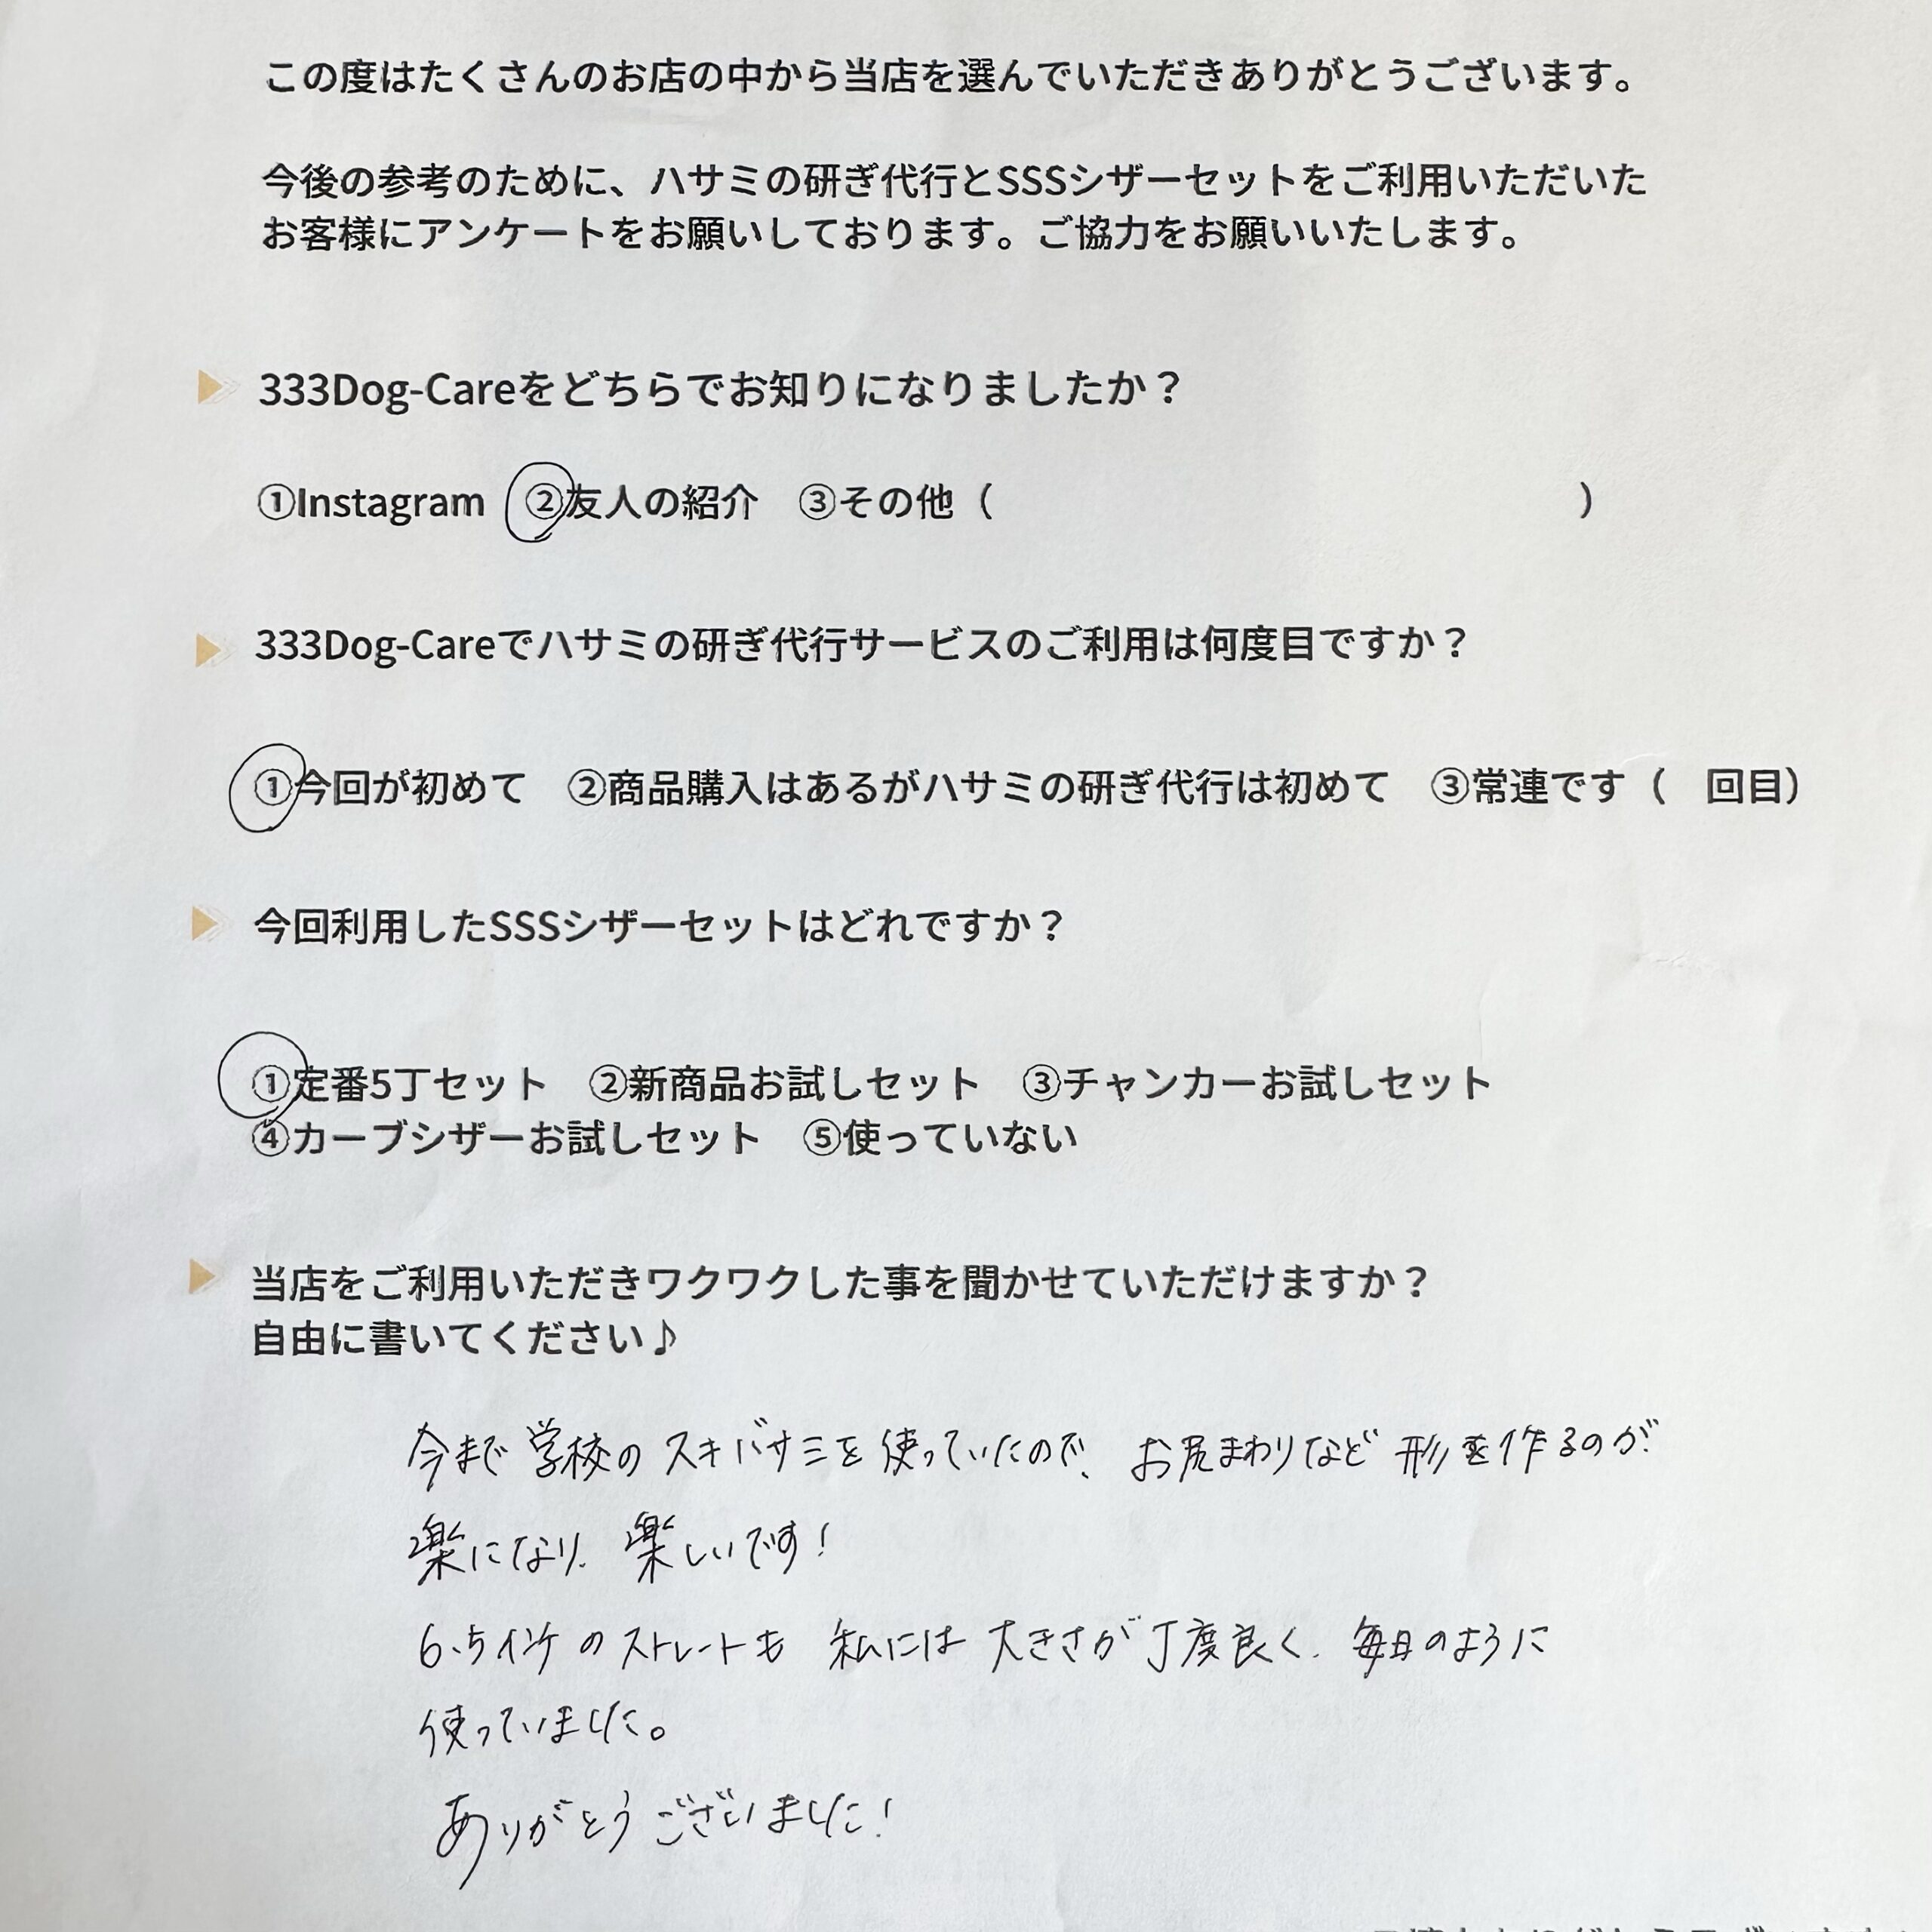 この度はたくさんのお店の中から当店を選んでいただきありがとうございます。
今後の参考のために、ハサミの研ぎ代行とSSSシザーセットをご利用いただいた
お客様にアンケートをお願いしております。ご協力をお願いいたします。
333Dog-Careをどちらでお知りになりましたか？
①Instagram ②友人の紹介 ③その他（ ）
333Dog-Careでハサミの研ぎ代行サービスのご利用は何度目ですか？
①今回が初めて ②商品購入はあるがハサミの研ぎ代行は初めて ③常連です（ 回目）
今回利用したSSSシザーセットはどれですか？
①定番5丁セット ②新商品お試しセット ③チャンカーお試しセット
④カーブシザーお試しセット ⑤使っていない
当店をご利用いただきワクワクした事を聞かせていただけますか？
自由に書いてください♪
今まで学校のスキバサミを使っていたので、お尻まわりなど形を作るのが
楽になり、楽しいです！
6.5インチのストレートも 私には大きさが丁度良く、毎日のように
使っていました。
ありがとうございました！